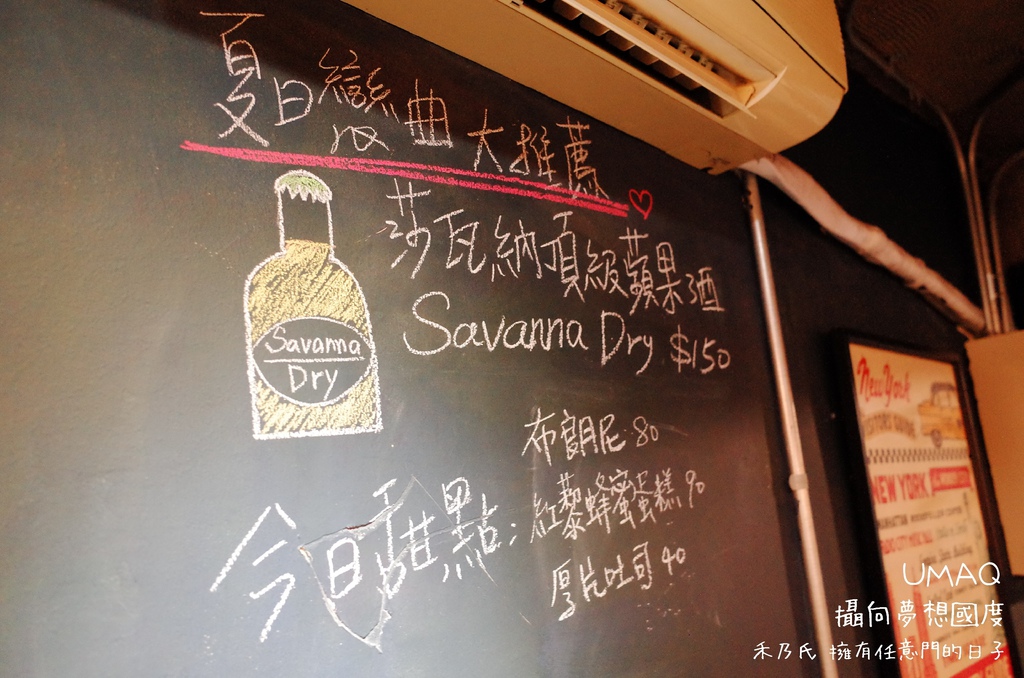 夏日戀曲 大推薦
莎瓦納頂級蘋果酒
Savanna Dry $150
Savanna
Dry
今日甜點:
布朗尼 80
紅藜蜂蜜蛋糕 90
厚片吐司 40
New York
VISITORS GUIDE
NEW YORK
UMAQ
攝向夢想國度
禾乃氏 擁有任意門的日子